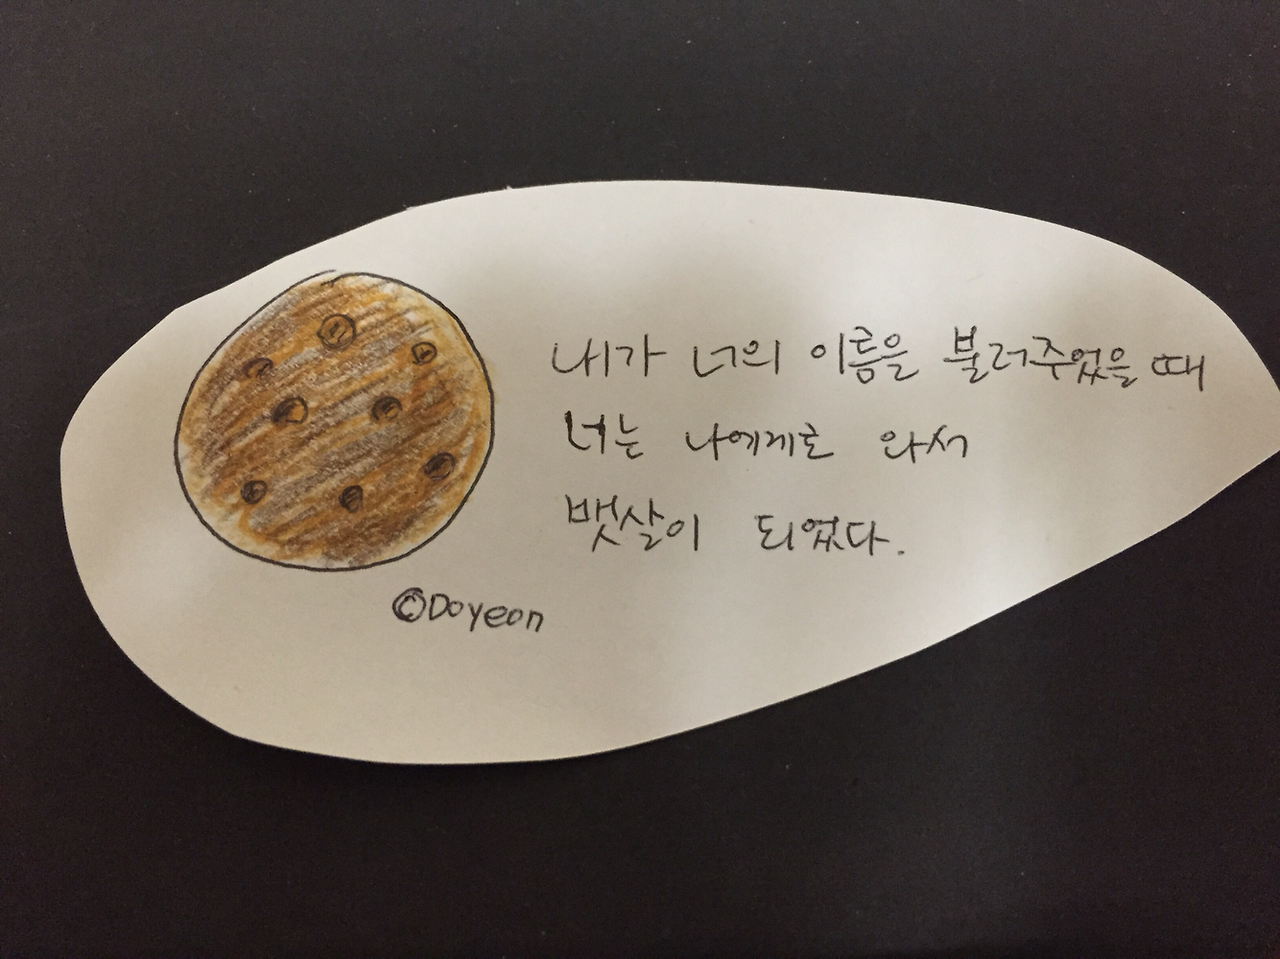 내가 너의 이름을 불러주었을 때
너는 나에게로 와서
뱃살이 되었다.
©Doyeon